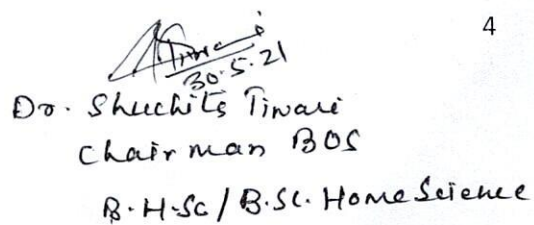 4
Tiwari
30.5.21
Dr. Shuchits Tiwari
Chairman BOS
B.H.Sc / B.Sc. Home Science